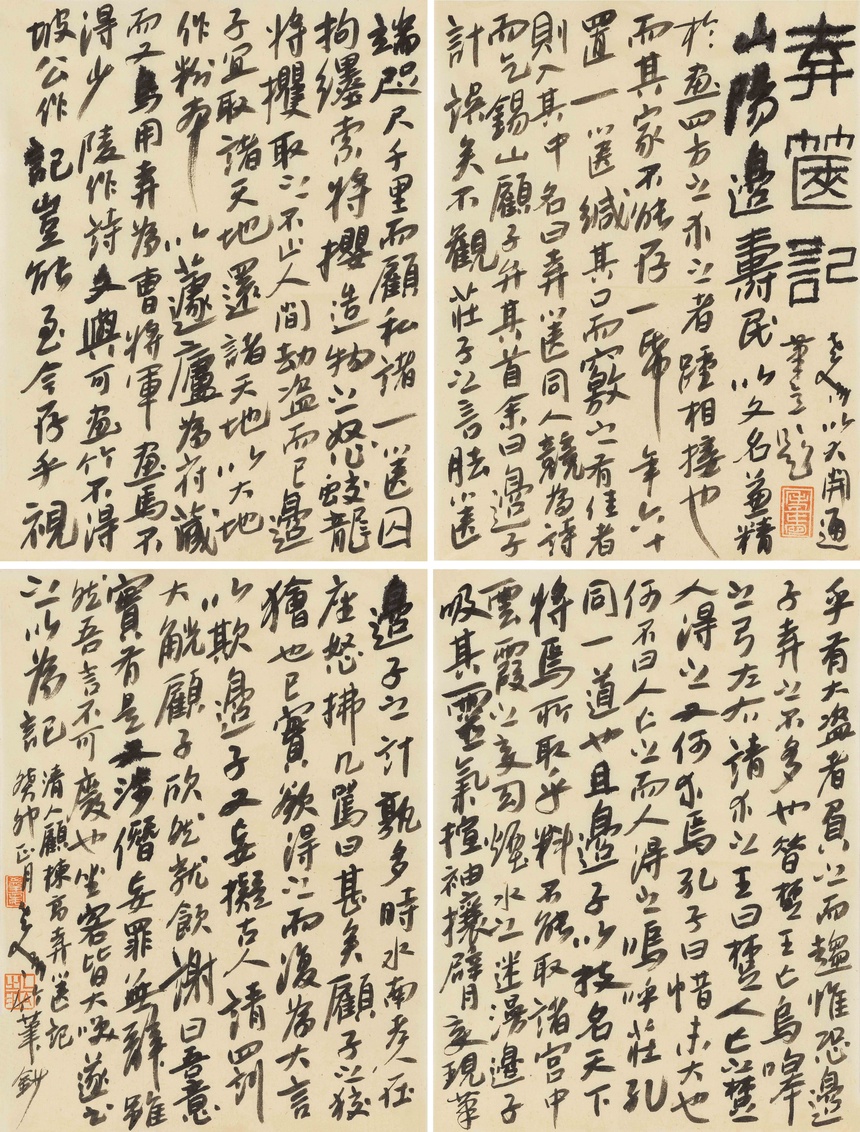 弆篋記
以大開通
筆意題
山陽邊壽民以文名兼精
於畫四方之求之者踵相接也
而其家不能存一幀年六十
置一篋緘其口而竅之有佳者
則入其中名曰弆篋同人競為詩
而乞錫山顧子弁其首余曰邊子
計誤矣不觀莊子之言胠篋
乎有大盜者負之而趨惟恐邊
子弆之不多也昔楚王亡烏嘷
之弓左右請求之王曰楚人亡之楚
人得之又何求焉孔子曰惜未大也
何不曰人亡之而人得之嗚呼莊孔
同一道也且邊子以技名天下
將焉所取乎料不能取諸宮中
雲霞之變幻煙水之迷漫邊子
吸其靈氣揎袖攘臂變現筆
端咫尺千里而顧私諸一篋囚
拘纏索將攖造物之怒蛟龍
將攫取之不止人間劫盜而已邊
子宜取諸天地還諸天地以大地
作粉本以蘧廬為府藏
而又烏用弆為曹將軍畫馬不
得少陵作詩文與可畫竹不得
坡公作記豈能至今存乎視
邊子之計孰多時水南老人在
座怒拂几罵曰甚矣顧子之狡
獪也已實欲得之而復為大言
以欺邊子又妄擬古人請罰
大觥顧子欣然就飲謝曰吾意
實有是又涉僭妄罪無辭雖
然吾言不可廢也坐客皆大噱遂書
之以為記
清人顧棟高弆篋記
癸卯正月老人筆鈔